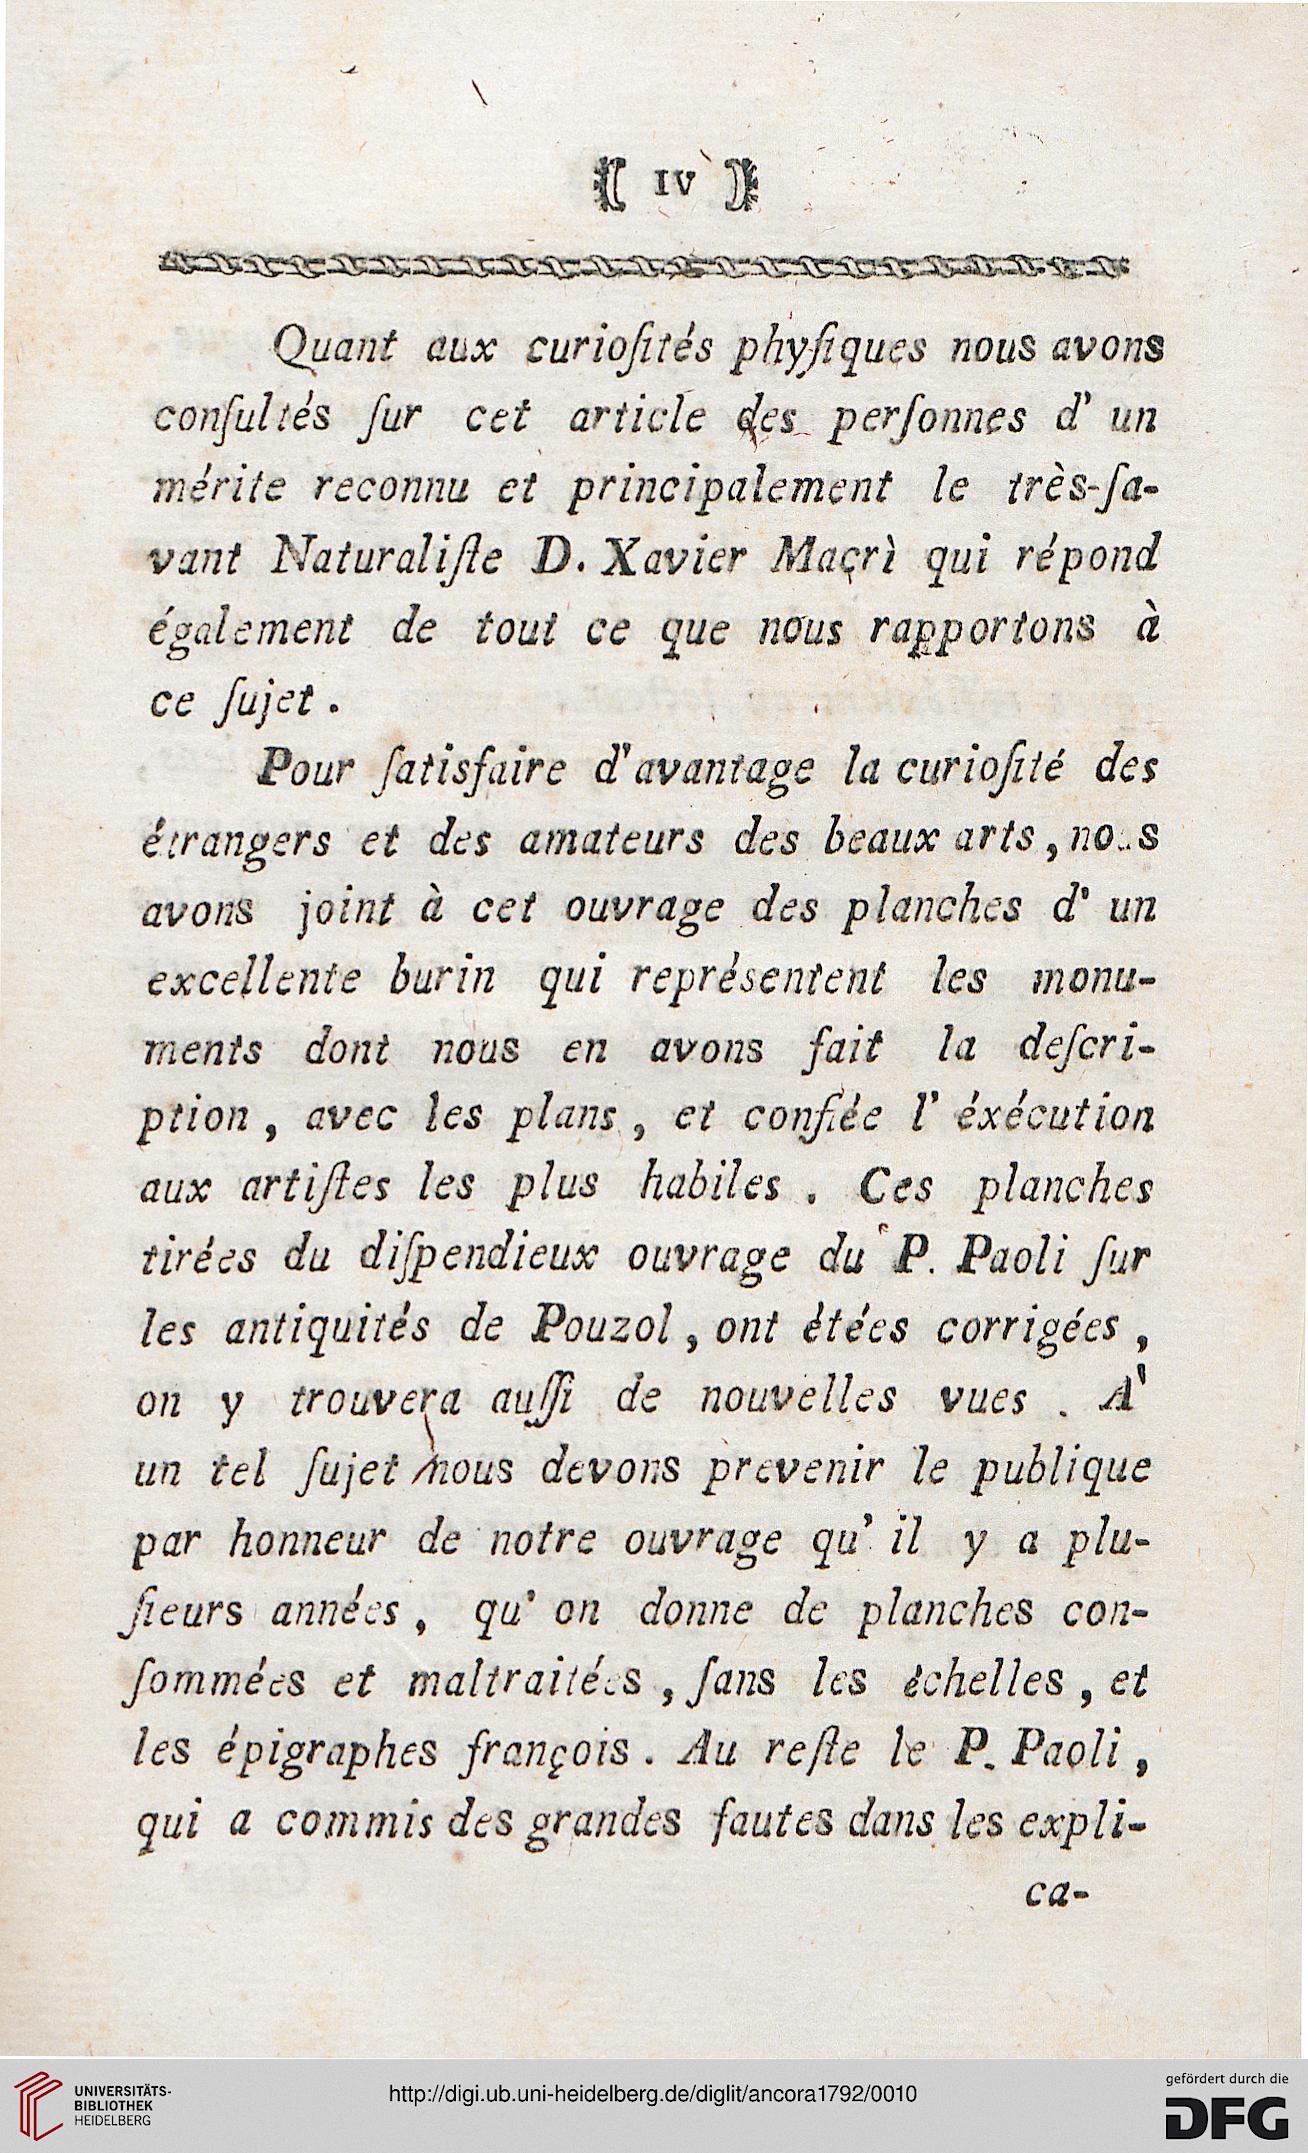 IV
Quant aux curioſités phyſiques nous avons
conſultés ſur cet article des perſonnes d' un
mérite reconnu et principalement le très-ſa-
vant Naturaliſte D. Xavier Maçrì qui répond
également de tout ce que nous rapportons à
ce ſujet .
Pour ſatisfaire d'avantage la curioſité des
étrangers et des amateurs des beaux arts , nous
avons joint à cet ouvrage des planches d' un
excellente burin qui représentent les monu-
ments dont nous en avons fait la deſcri-
ption , avec les plans , et confiée l' éxécution
aux artiſtes les plus habiles . Ces planches
tirées du diſpendieux ouvrage du P. Paoli ſur
les antiquités de Pouzol , ont étées corrigées ,
on y trouvera auſſi de nouvelles vues . A'
un tel ſujet nous devons prevenir le publique
par honneur de notre ouvrage qu' il y a plu-
ſieurs années , qu' on donne de planches con-
ſommées et maltraitées , ſans les échelles , et
les épigraphes françois . Au reſte le P. Paoli ,
qui a commis des grandes fautes dans les expli-
ca-
UNIVERSITÄTS-
BIBLIOTHEK
HEIDELBERG
http://digi.ub.uni-heidelberg.de/diglit/ancora1792/0010
gefördert durch die
DFG